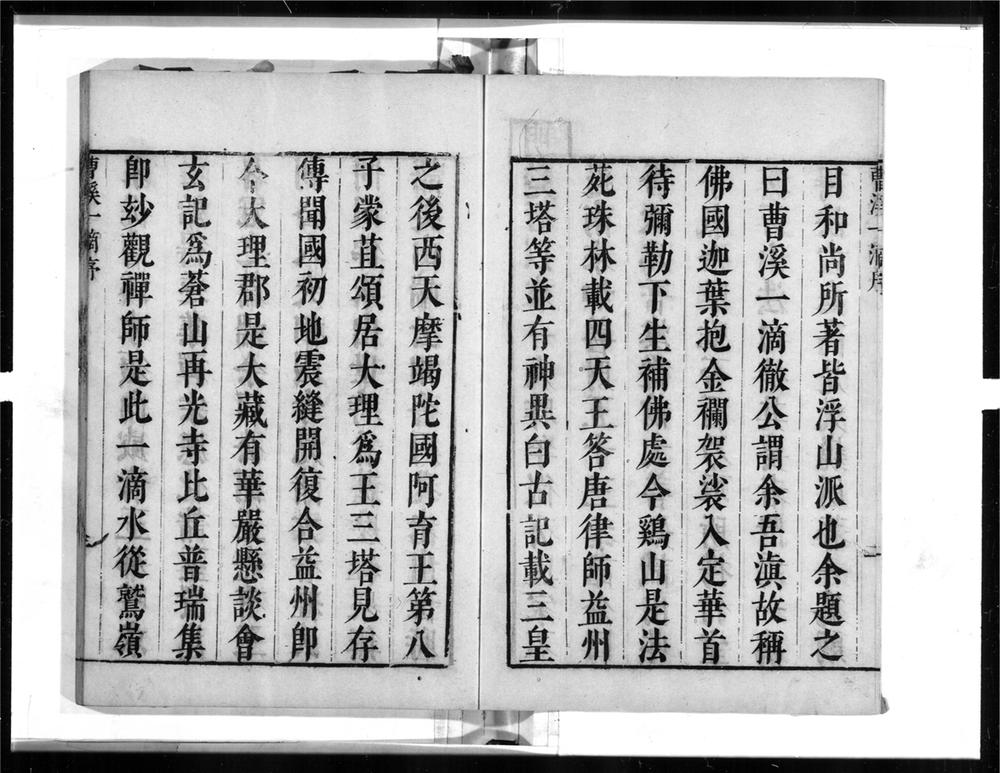 曹溪一滴序
目和尚所著皆浮山派也余題之
曰曹溪一滴徹公謂余吾滇故稱
佛國迦葉抱金襴袈裟入定華首
待彌勒下生補佛處今鷄山是法
苑珠林載四天王答唐律師益州
三塔等並有神異曰古記載三皇
之後西天摩竭陀國阿育王第八
子蒙苴頌居大理爲王三塔見存
傳聞國初地震縫開復合益州卽
今大理郡是大藏有華嚴懸談會
玄記爲蒼山再光寺比丘普瑞集
卽玅觀禪師是此一滴水從鷲嶺
曹溪一滴序